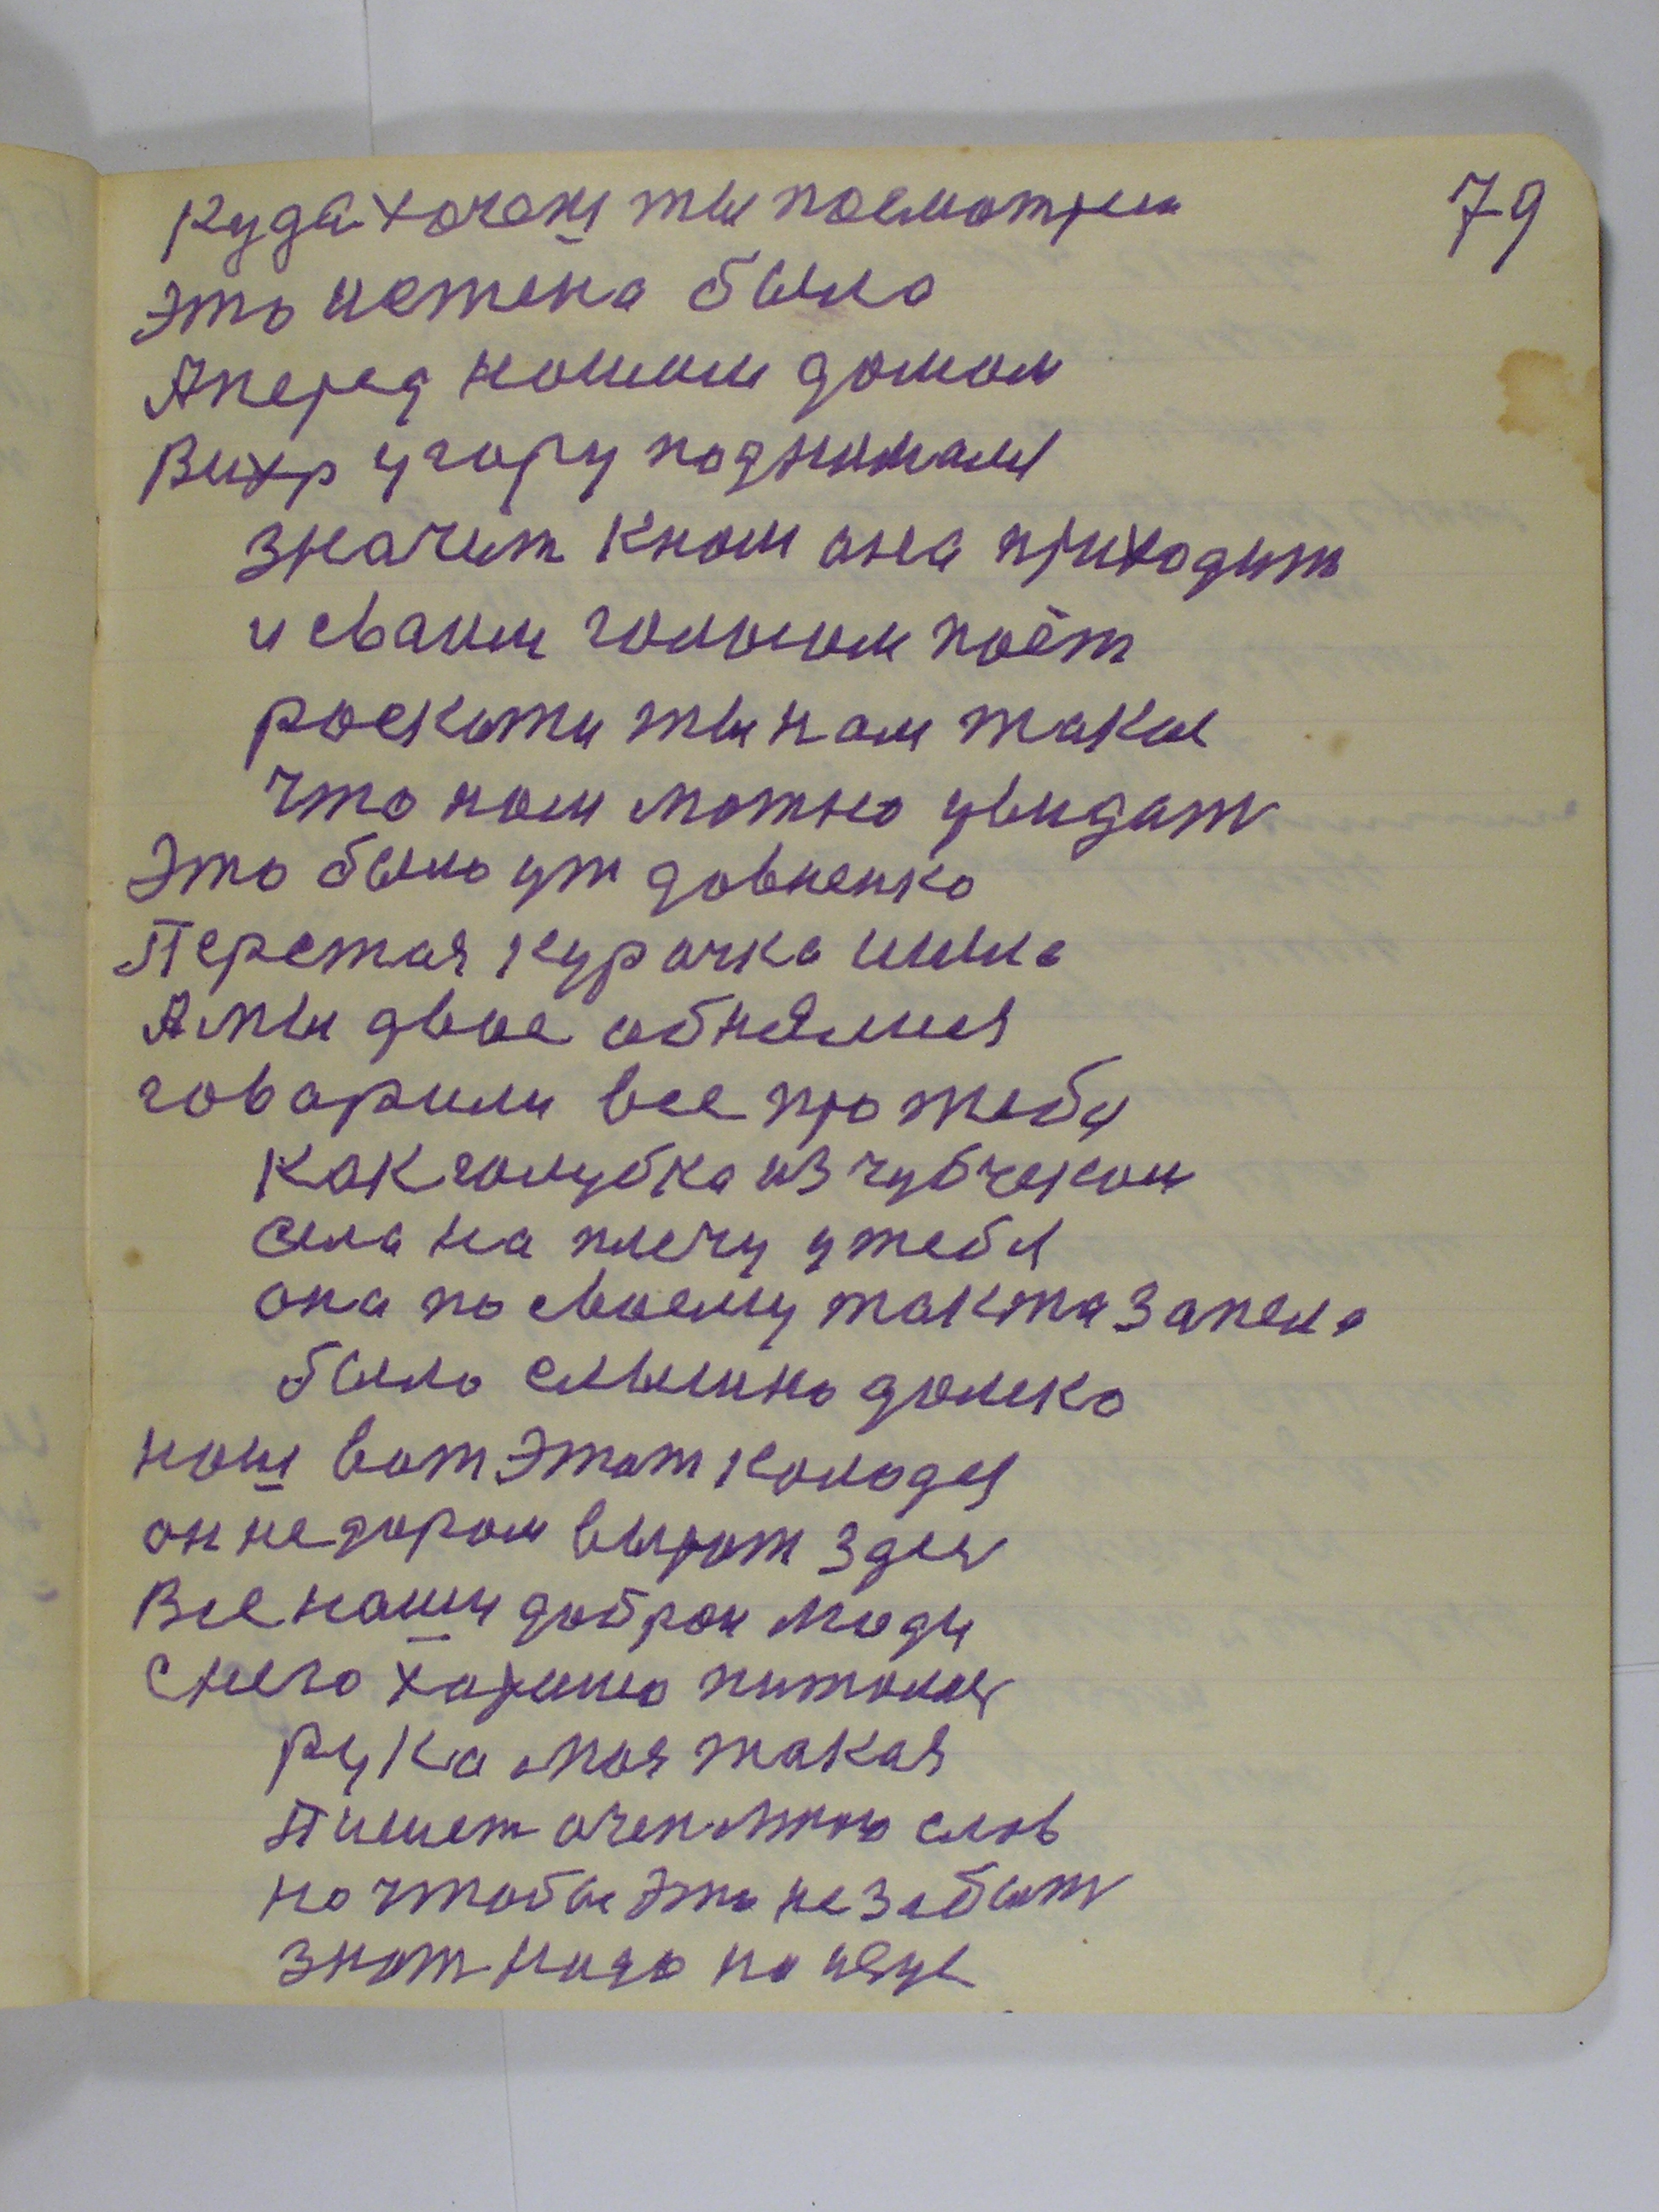 79
Куда хочеш ты посмотри
Это истена была
Аперед нашим домом
Вихр угору поднимался
значит кнам она приходит
и сваим голосом поёт
роскати ты нам такое
что нам можно увидат
Это было уж давненко
Перстая курачка шила
Амы двое обнялися
говарили все про тебя
как голубка из чубчеком
села на плечу у тебя
она по своему так та запела
было слышно далико
наш вот Этот колодец
он не даром вырот здес
Все наши доброи люди
снего харашо питалис
рука моя такая
Пишет очен много слов
но чтобы Это не забыт
знат надо